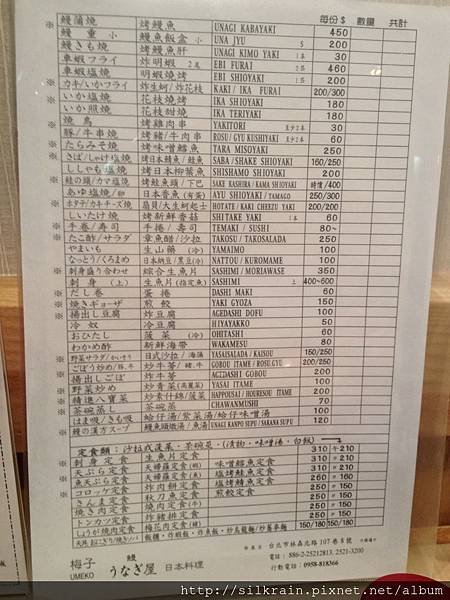 每份$ 數量 共計
※ 鰻蒲燒 烤鰻魚 UNAGI KABAYAKI 450
鰻重小 鰻魚飯盒 小 UNA JYU S 200
※ 鰻きも燒 烤鰻魚肝 UNAGI KIMO YAKI 1本 30
車蝦フライ 炸明蝦 2尾 EBI FURAI 460
車蝦塩燒 明蝦鹽燒 EBI SHIOYAKI 200
カキ/いかフライ 炸生蚵/炸花枝 KAKI / IKA FURAI 200/300
いか塩燒 花枝鹽烤 IKA SHIOYAKI 180
いか照燒 花枝甜燒 IKA TERIYAKI 180
燒鳥 烤雞肉串 YAKITORI 30
豚/牛串燒 烤豬/牛肉串 ROSU/GYU KUSHIYAKI 60
たらみそ燒 烤味噌鱈魚 TARA MISOYAKI 250
さば/しゃけ塩燒 烤日本鯖魚/鮭魚 SABA/SHAKE SHIOYAKI 160/250
ししゃも塩燒 烤日本柳葉魚 SHISHAMO SHIOYAKI 200
鮭の頭/カマ塩燒 烤鮭魚頭/下巴 SAKE KASHIRA/KAMA SHIOYAKI 時價/400
あゆ塩燒/卵 日本香魚(有蛋) AYU SHIOYAKI/TAMAGO 250/300
ホタテ/カキチーズ燒 扇貝/大生蚵起士 HOTATE / KAKI CHEEZU YAKI 200/200
しいたけ燒 烤新鮮香菇 SHITAKE YAKI 1本 60
手卷/寿司 手捲/壽司 TEMAKI / SUSHI 80~
たこ酢/サラダ 章魚醋/沙拉 TAKOSU / TAKOSALADA 250
やまいも 生山藥(冷) YAMAIMO 100
なっとう/くろまめ 日本納豆/黑豆(冷) NATTOU/KUROMAME 100
刺身盛り合わせ 綜合生魚片 SASHIMI/MORIAWASE 350
刺身(上) 生魚片(指定魚) SASHIMI 上 400~600
だし卷 蛋捲 DASHI MAKI 60
燒きギョーザ 煎餃 YAKI GYOZA 150
揚出し豆腐 炸豆腐 AGEDASHI DOFU 100
冷奴 冷豆腐 HIYAYAKKO 50
おひたし 菠菜(冷) OHITASHI 60
わかめ酢 新鮮海帶 WAKAMESU 80
野菜サラダ/かいそう 日式沙拉/海藻 YASAISALADA/KAISOU 150/250
ごぼう炒め/豚.牛 炒牛蒡/豬.牛 GOBOU ITAME / ROSU.GYU 200/250
揚出しごぼ 炸牛蒡 AGEDASHI GOBOU 200
野菜炒め 炒青菜(高麗菜) YASAI ITAME 100
精進八寶菜 炒素什錦/菠菜 HAPPOUSAI/HOURENSOU ITAME 200
茶碗蒸し 茶碗蒸 CHAWANMUSHI 70
はま吸/きも吸 蛤仔湯/紫菜湯/蛤仔味噌湯 100
※ 鰻の漢方スープ 鰻魚頭燉湯/魚湯 UNAGI KANPO SUPU / SAKANA SUPU 120
定食類：沙拉或菠菜、茶碗蒸、(漬物、味噌湯、白飯)
刺身定食 生魚片定食 310
天ぷら定食 天婦羅定食 味噌鱈魚定食 310 〃210
魚天ぷら定食 天婦羅定食(魚) 塩烤鯖魚定食 260 〃160
コロッケ定食 炸肉餅定食 塩烤鮭魚定食 250 〃150
さんま定食 秋刀魚定食 煎餃定食 250 〃150
燒き肉定食 燒肉定食(牛) 250 〃150
トンカツ定食 炸豬排定食 250 〃150
しょうが燒肉定食 梅花肉定食 150/180 150/180
台北市林森北路107巷8號
梅子 UMEKO 鰻 うなぎ屋 日本料理
電話：886-2-25212813. 2521-3200
行動電話：0958-818366
http://silkrain.pixnet.net/album